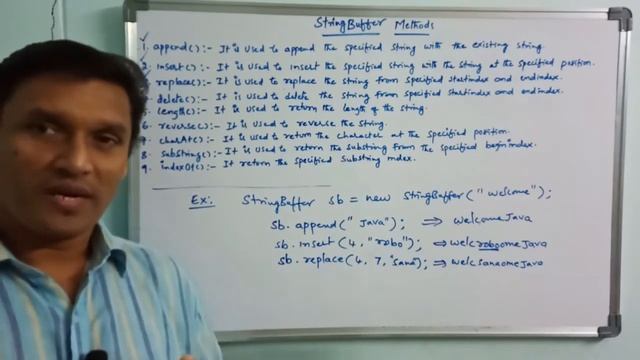 StringBuffer Methods
1. append():- It is used to append the specified string with the existing string.
2. insert():- It is used to insert the specified string with the string at the specified position.
3. replace():- It is used to replace the string from specified startindex and endindex.
4. delete():- It is used to delete the string from specified startindex and endindex.
5. length():- It is used to return the length of the string.
6. reverse():- It is used to reverse the string.
7. charAt():- It is used to return the character at the specified position.
8. substring():- It is used to return the substring from the specified beginindex.
9. indexOf():- It return the specified substring index.
Ex:. StringBuffer sb = new StringBuffer("welcome");
sb.append("Java"); ⇒ welcomeJava
sb.insert(4,"robo"); ⇒ welcroboomeJava
sb.replace(4, 7, "sana); ⇒ welcsanaomeJava